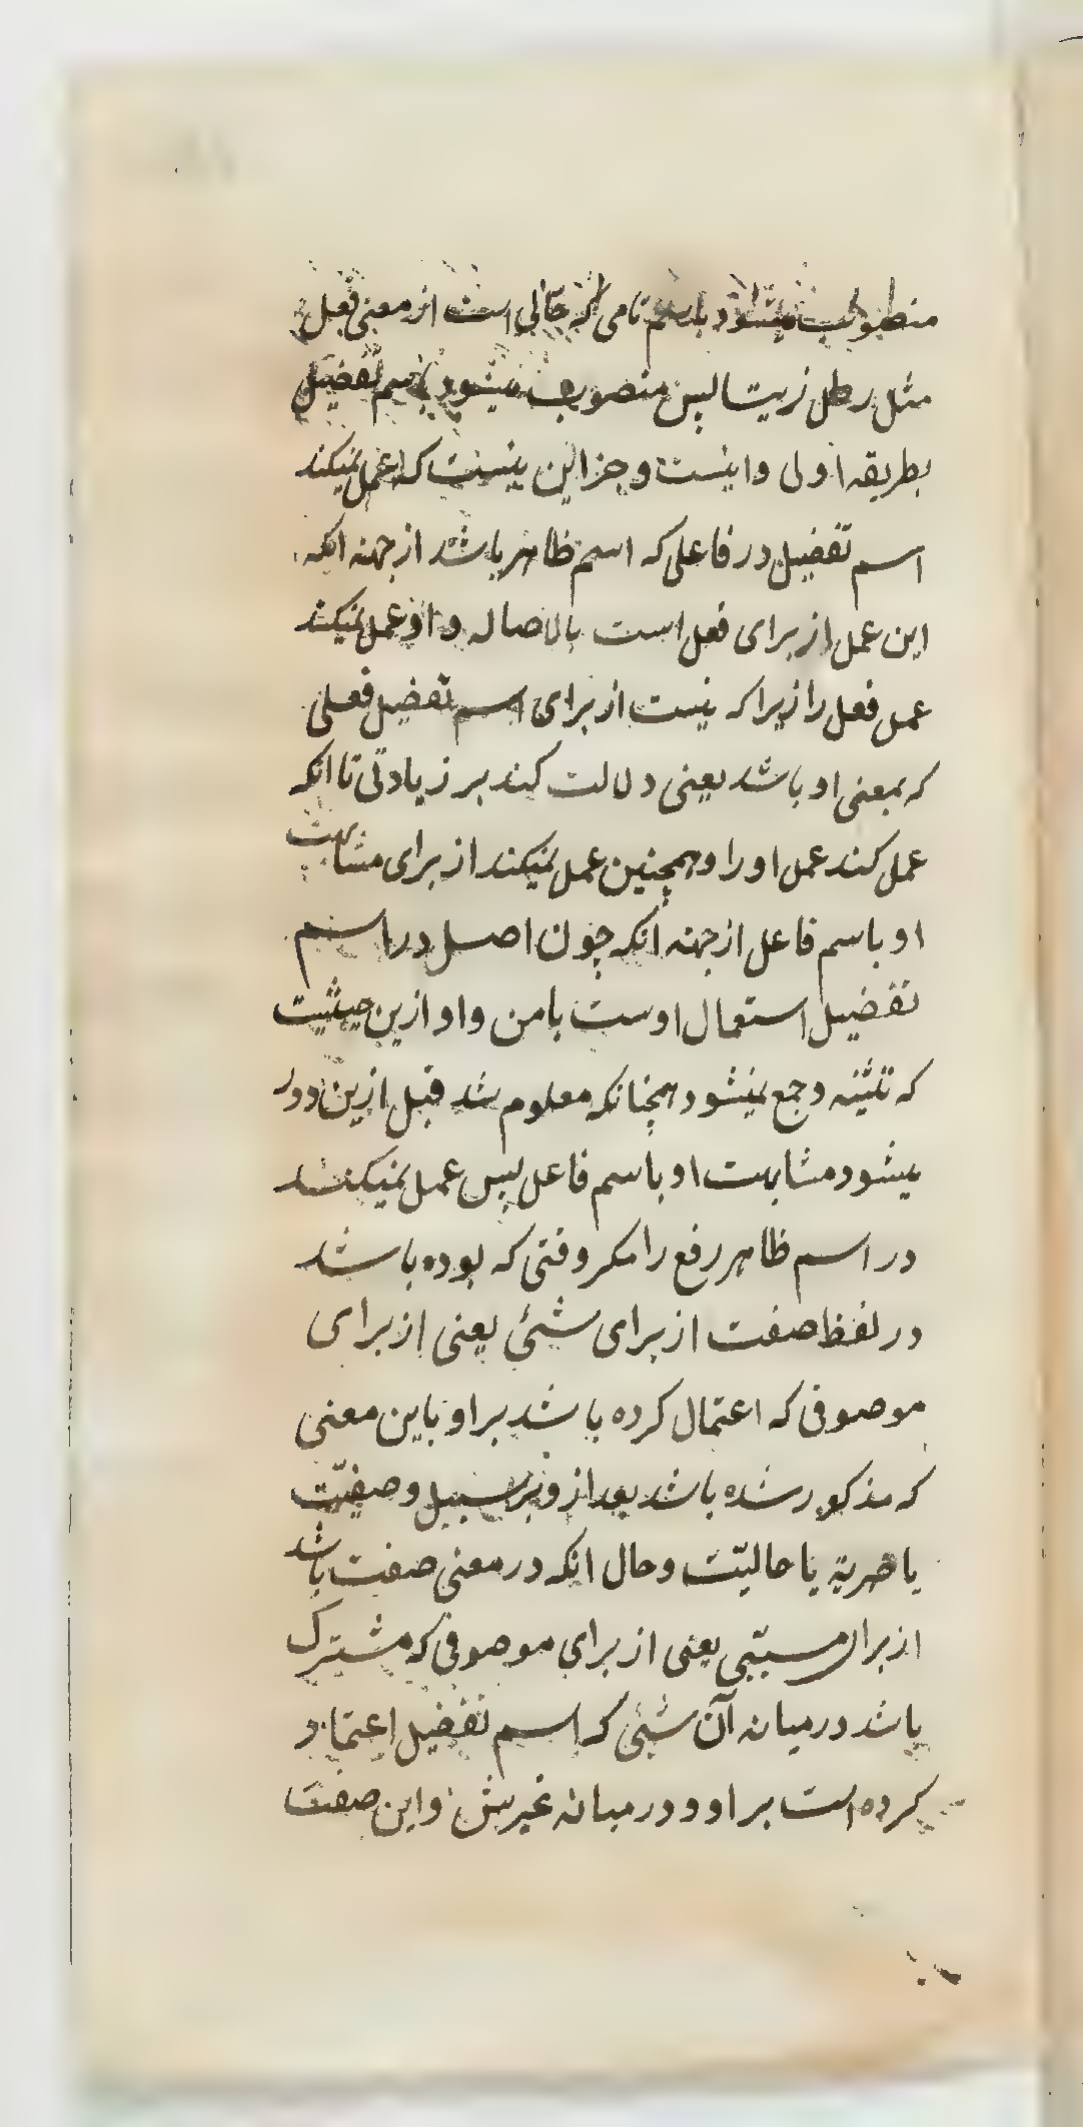 منصوب میشود باسم تامی که خالی است از معنی فعل
مثل رطل زیتا پس منصوب میشود باسم تفضیل
بطریقه اولی و اینست و جز این نیست که عمل نمیکند
اسم تفضیل در فاعلی که اسم ظاهر باشد از جهته انکه
این عمل از برای فعل است بالاصاله و او عمل نمیکند
عمل فعل را زیرا که نیست از برای اسم تفضیل فعلی
که بمعنی او باشد یعنی دلالت کند بر زیادتی تا انکه
عمل کند عمل او را و همچنین عمل نمیکند از برای مشابهت
او باسم فاعل از جهته انکه چون اصل در اسم
تفضیل استعمال اوست با من و او ازین حیثیت
که تثنیه و جمع نمیشود همچنانکه معلوم شد قبل ازین دور
میشود مشابهت او باسم فاعل پس عمل نمیکند
در اسم ظاهر رفع را مکر وقتی که بوده باشد
در لفظ صفت از برای شئی یعنی از برای
موصوفی که اعتمال کرده باشد بر او باین معنی
که مذکور شده باشد بعد از و بر سبیل وصفیّت
یا خبریة یا حالیّت و حال انکه در معنی صفت باشد
از برای مسبّبی یعنی از برای موصوفی که مشترک
باشد در میانه آن شئی که اسم تفضیل اعتماد
کرده است بر او و در میانه غیرش و این صفت